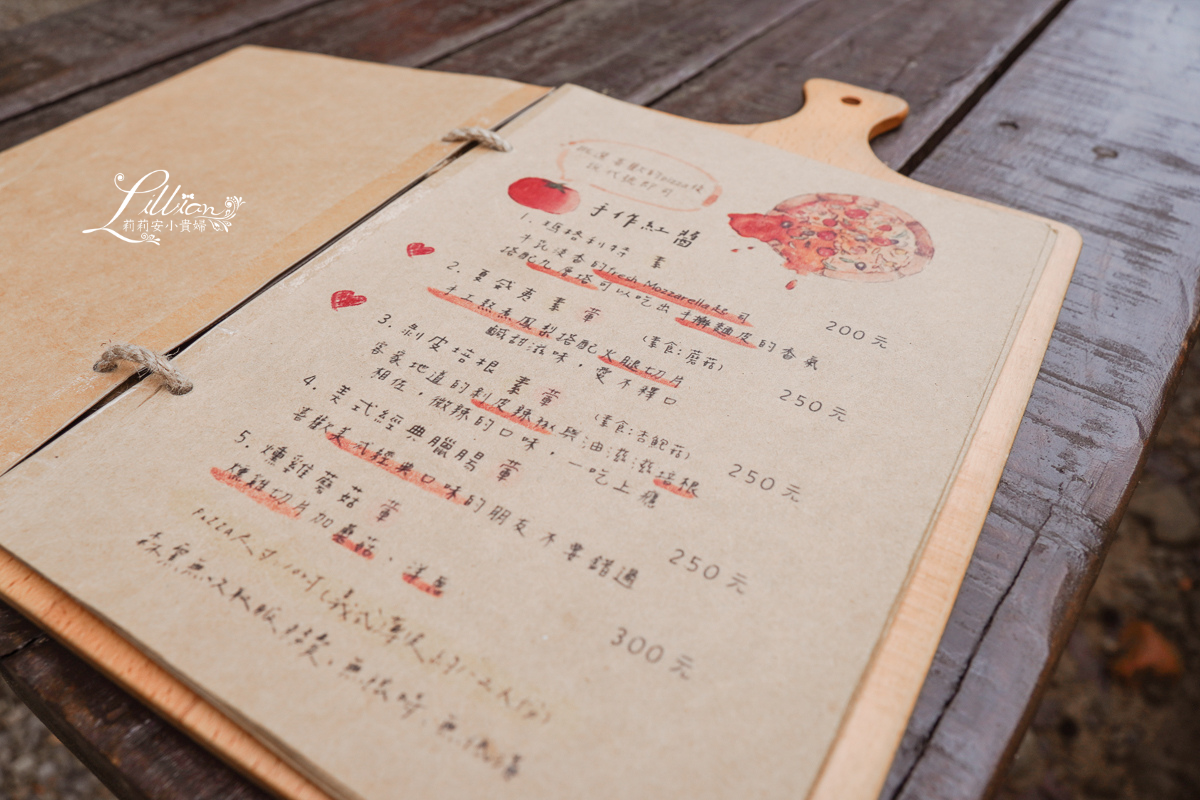 Lillian
莉莉安小貴婦
挑選喜歡的pizza後
手作紅醬
1. 瑪格利特 素 200元
牛乳淡香的fresh Mozzarella起司
搭配九層塔可以吃出手擀麵皮的香氣
2. 夏威夷 素 葷 (素食:蘑菇) 250元
手工熬煮鳳梨搭配火腿切片
鹹甜滋味，愛不釋口
3. 剝皮培根 素 葷 (素食:杏鮑菇) 250元
客家地道的剝皮辣椒與油滋滋培根
相佐，微辣的口味，一吃上癮
4. 美式經典臘腸 葷 250元
喜歡美式經典口味的朋友不要錯過
5. 燻雞蘑菇 葷 300元
燻雞切片加蘑菇、洋蔥
PIZZA